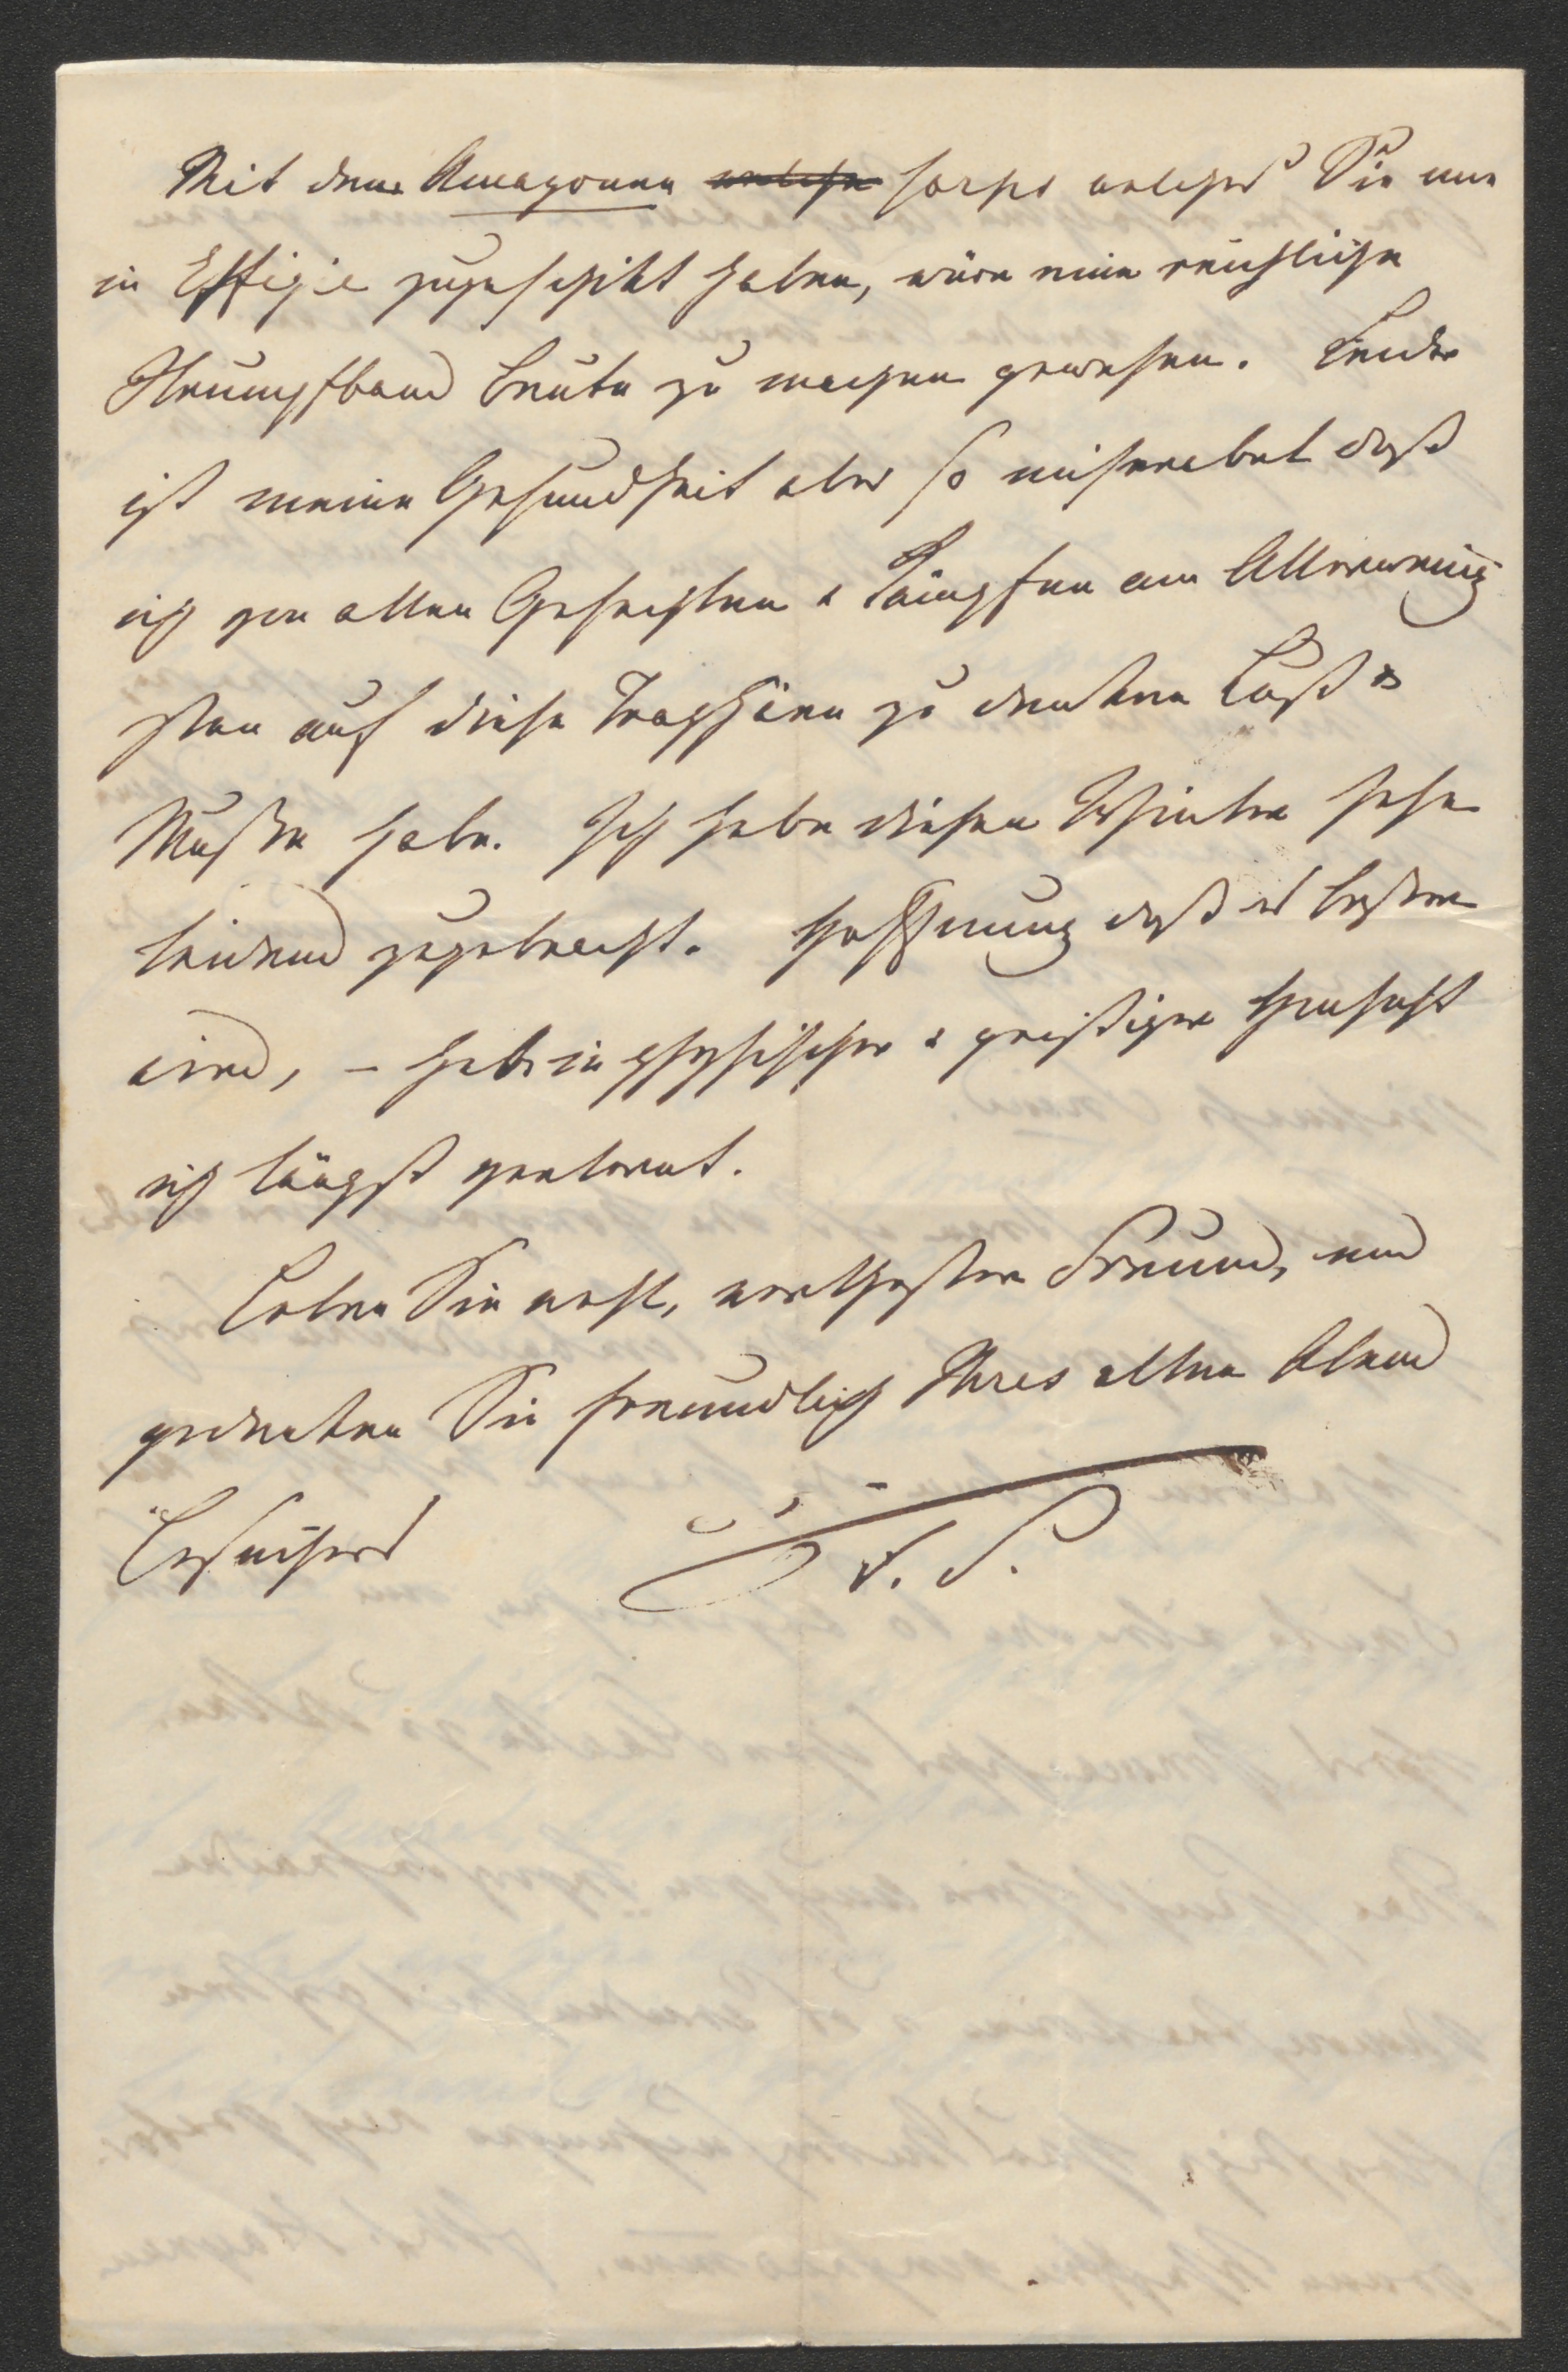 Mit dem Amazonen welche corps welches Sie mir
in Effigie zugeschikt haben, wäre eine reichliche
Strumpfband Beute zu machen gewesen. Leider
ist meine Gesundheit aber so miserabel daß
ich von allen Gefechten & Kämpfen am Allerwenig
sten auf diese Trophäen zu denken Lust &
Muße habe. Ich habe diesen Winter sehr
leidend zugebracht. Hoffnung daß es besser
wird, – hab in physischer & geistiger Hinsicht
ich längst verlernt.
Leben Sie wohl, werthester Freund, und
gedenken Sie freundlich Ihres alten Abend
Besuchers